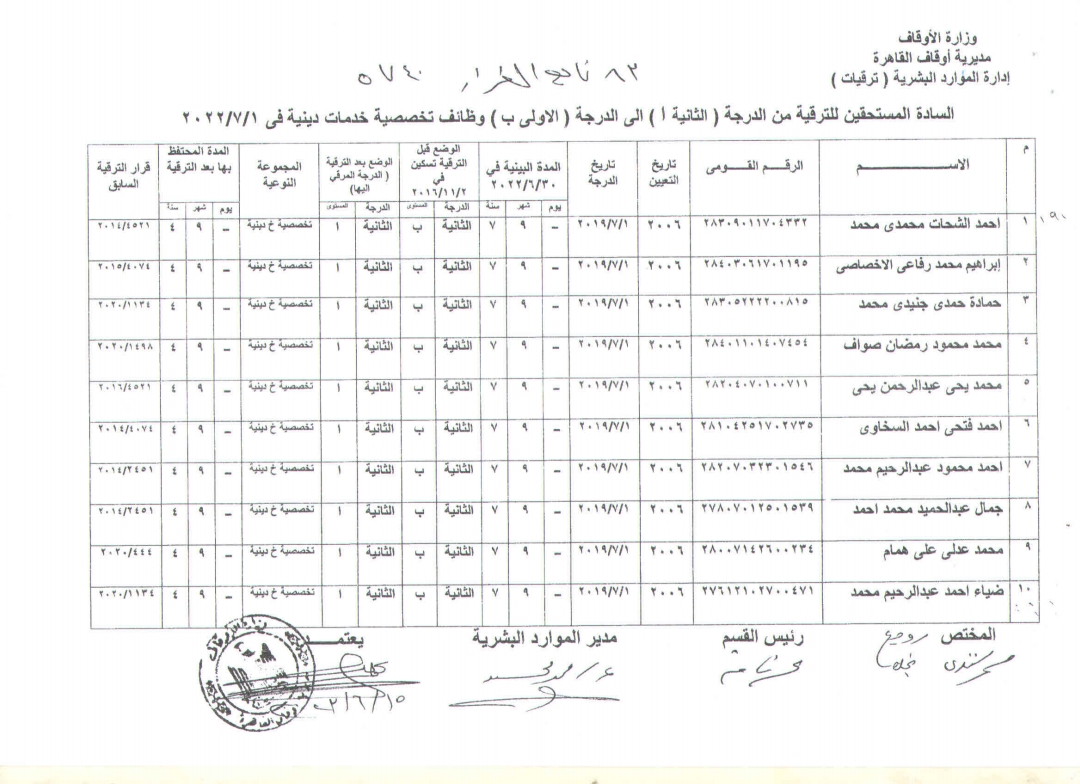 وزارة الأوقاف
مديرية أوقاف القاهرة
إدارة الموارد البشرية ( ترقيات )
٨٣ تابع القرار ٥٧٤٠
السادة المستحقين للترقية من الدرجة ( الثانية أ ) الى الدرجة ( الاولى ب ) وظائف تخصصية خدمات دينية فى ٢٠٢٢/٧/١
م الاســـــم الرقم القومى تاريخ التعيين تاريخ الدرجة المدة البينية في ٢٠٢٢/٦/٣٠ الوضع قبل الترقية تسكين في ٢٠١٦/١١/٢ الوضع بعد الترقية ( الدرجة المرقي اليها) المجموعة النوعية المدة المحتفظ بها بعد الترقية قرار الترقية السابق
يوم شهر سنة الدرجة المستوى الدرجة المستوى يوم شهر سنة
١ احمد الشحات محمدى محمد ٢٨٣٠٩٠١١٧٠٤٣٣٢ ٢٠٠٦ ٢٠١٩/٧/١ – ٩ ٧ الثانية ب الثانية ا تخصصية خ دينية – ٩ ٤ ٢٠١٤/٤٥٢١
٢ إبراهيم محمد رفاعى الاخصاصى ٢٨٤٠٣٠٦١٧٠١١٩٥ ٢٠٠٦ ٢٠١٩/٧/١ – ٩ ٧ الثانية ب الثانية ا تخصصية خ دينية – ٩ ٤ ٢٠١٥/٤٠٧٤
٣ حمادة حمدى جنيدى محمد ٢٨٣٠٥٢٢٢٢٠٠٨١٥ ٢٠٠٦ ٢٠١٩/٧/١ – ٩ ٧ الثانية ب الثانية ا تخصصية خ دينية – ٩ ٤ ٢٠٢٠/١١٣٤
٤ محمد محمود رمضان صواف ٢٨٤٠١١٠١٤٠٧٤٥٤ ٢٠٠٦ ٢٠١٩/٧/١ – ٩ ٧ الثانية ب الثانية ا تخصصية خ دينية – ٩ ٤ ٢٠٢٠/١٤٩٨
٥ محمد يحى عبدالرحمن يحى ٢٨٢٠٤٠٧٠١٠٠٧١١ ٢٠٠٦ ٢٠١٩/٧/١ – ٩ ٧ الثانية ب الثانية ا تخصصية خ دينية – ٩ ٤ ٢٠١٦/٤٥٢١
٦ احمد فتحى احمد السخاوى ٢٨١٠٤٢٥١٧٠٢٧٣٥ ٢٠٠٦ ٢٠١٩/٧/١ – ٩ ٧ الثانية ب الثانية ا تخصصية خ دينية – ٩ ٤ ٢٠١٤/٤٠٧٤
٧ احمد محمود عبدالرحيم محمد ٢٨٢٠٧٠٣٢٣٠١٥٤٦ ٢٠٠٦ ٢٠١٩/٧/١ – ٩ ٧ الثانية ب الثانية ا تخصصية خ دينية – ٩ ٤ ٢٠١٤/٢٤٥١
٨ جمال عبدالحميد محمد احمد ٢٧٨٠٧٠١٢٥٠١٥٣٩ ٢٠٠٦ ٢٠١٩/٧/١ – ٩ ٧ الثانية ب الثانية ا تخصصية خ دينية – ٩ ٤ ٢٠١٤/٢٤٥١
٩ محمد عدلى على همام ٢٨٠٠٧١٤٢٦٠٠٢٣٤ ٢٠٠٦ ٢٠١٩/٧/١ – ٩ ٧ الثانية ب الثانية ا تخصصية خ دينية – ٩ ٤ ٢٠٢٠/٤٤٤
١٠ ضياء احمد عبدالرحيم محمد ٢٧٦١٢١٠٢٧٠٠٤٧١ ٢٠٠٦ ٢٠١٩/٧/١ – ٩ ٧ الثانية ب الثانية ا تخصصية خ دينية – ٩ ٤ ٢٠٢٠/١١٣٤
المختص رئيس القسم مدير الموارد البشرية يعتمـــد